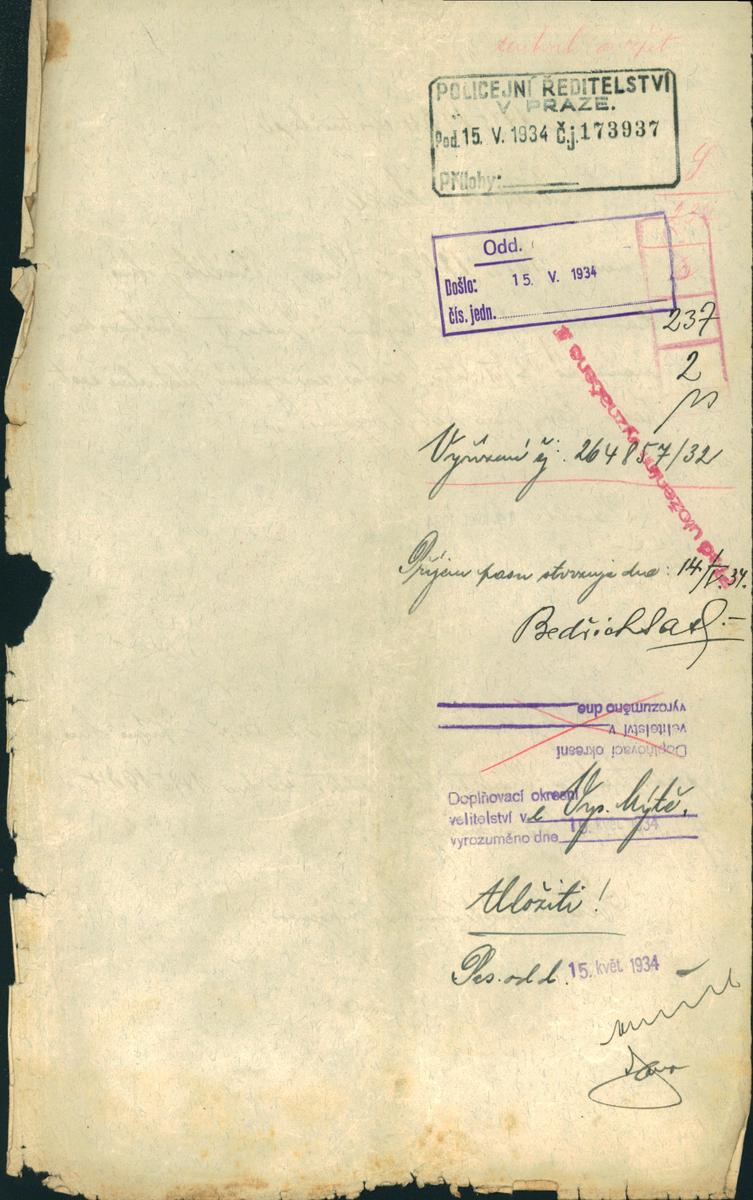 POLICEJNÍ ŘEDITELSTVÍ
V PRAZE.
Pod. 15. V. 1934 Č.j. 173937
Přílohy:
Odd.
Došlo: 15. V. 1934
čís. jedn.
237
2
Vyřízení čj: 264857/32
Příjem pasu stvrzuje dne: 14/V. 34.
Bedřich
Doplňovací okresní
velitelství v
vyrozuměno dne
Doplňovací okresní
velitelství v Vys. Mýtě.
vyrozuměno dne 15. květ. 1934
Uložiti!
Pas. odd. 15. květ. 1934